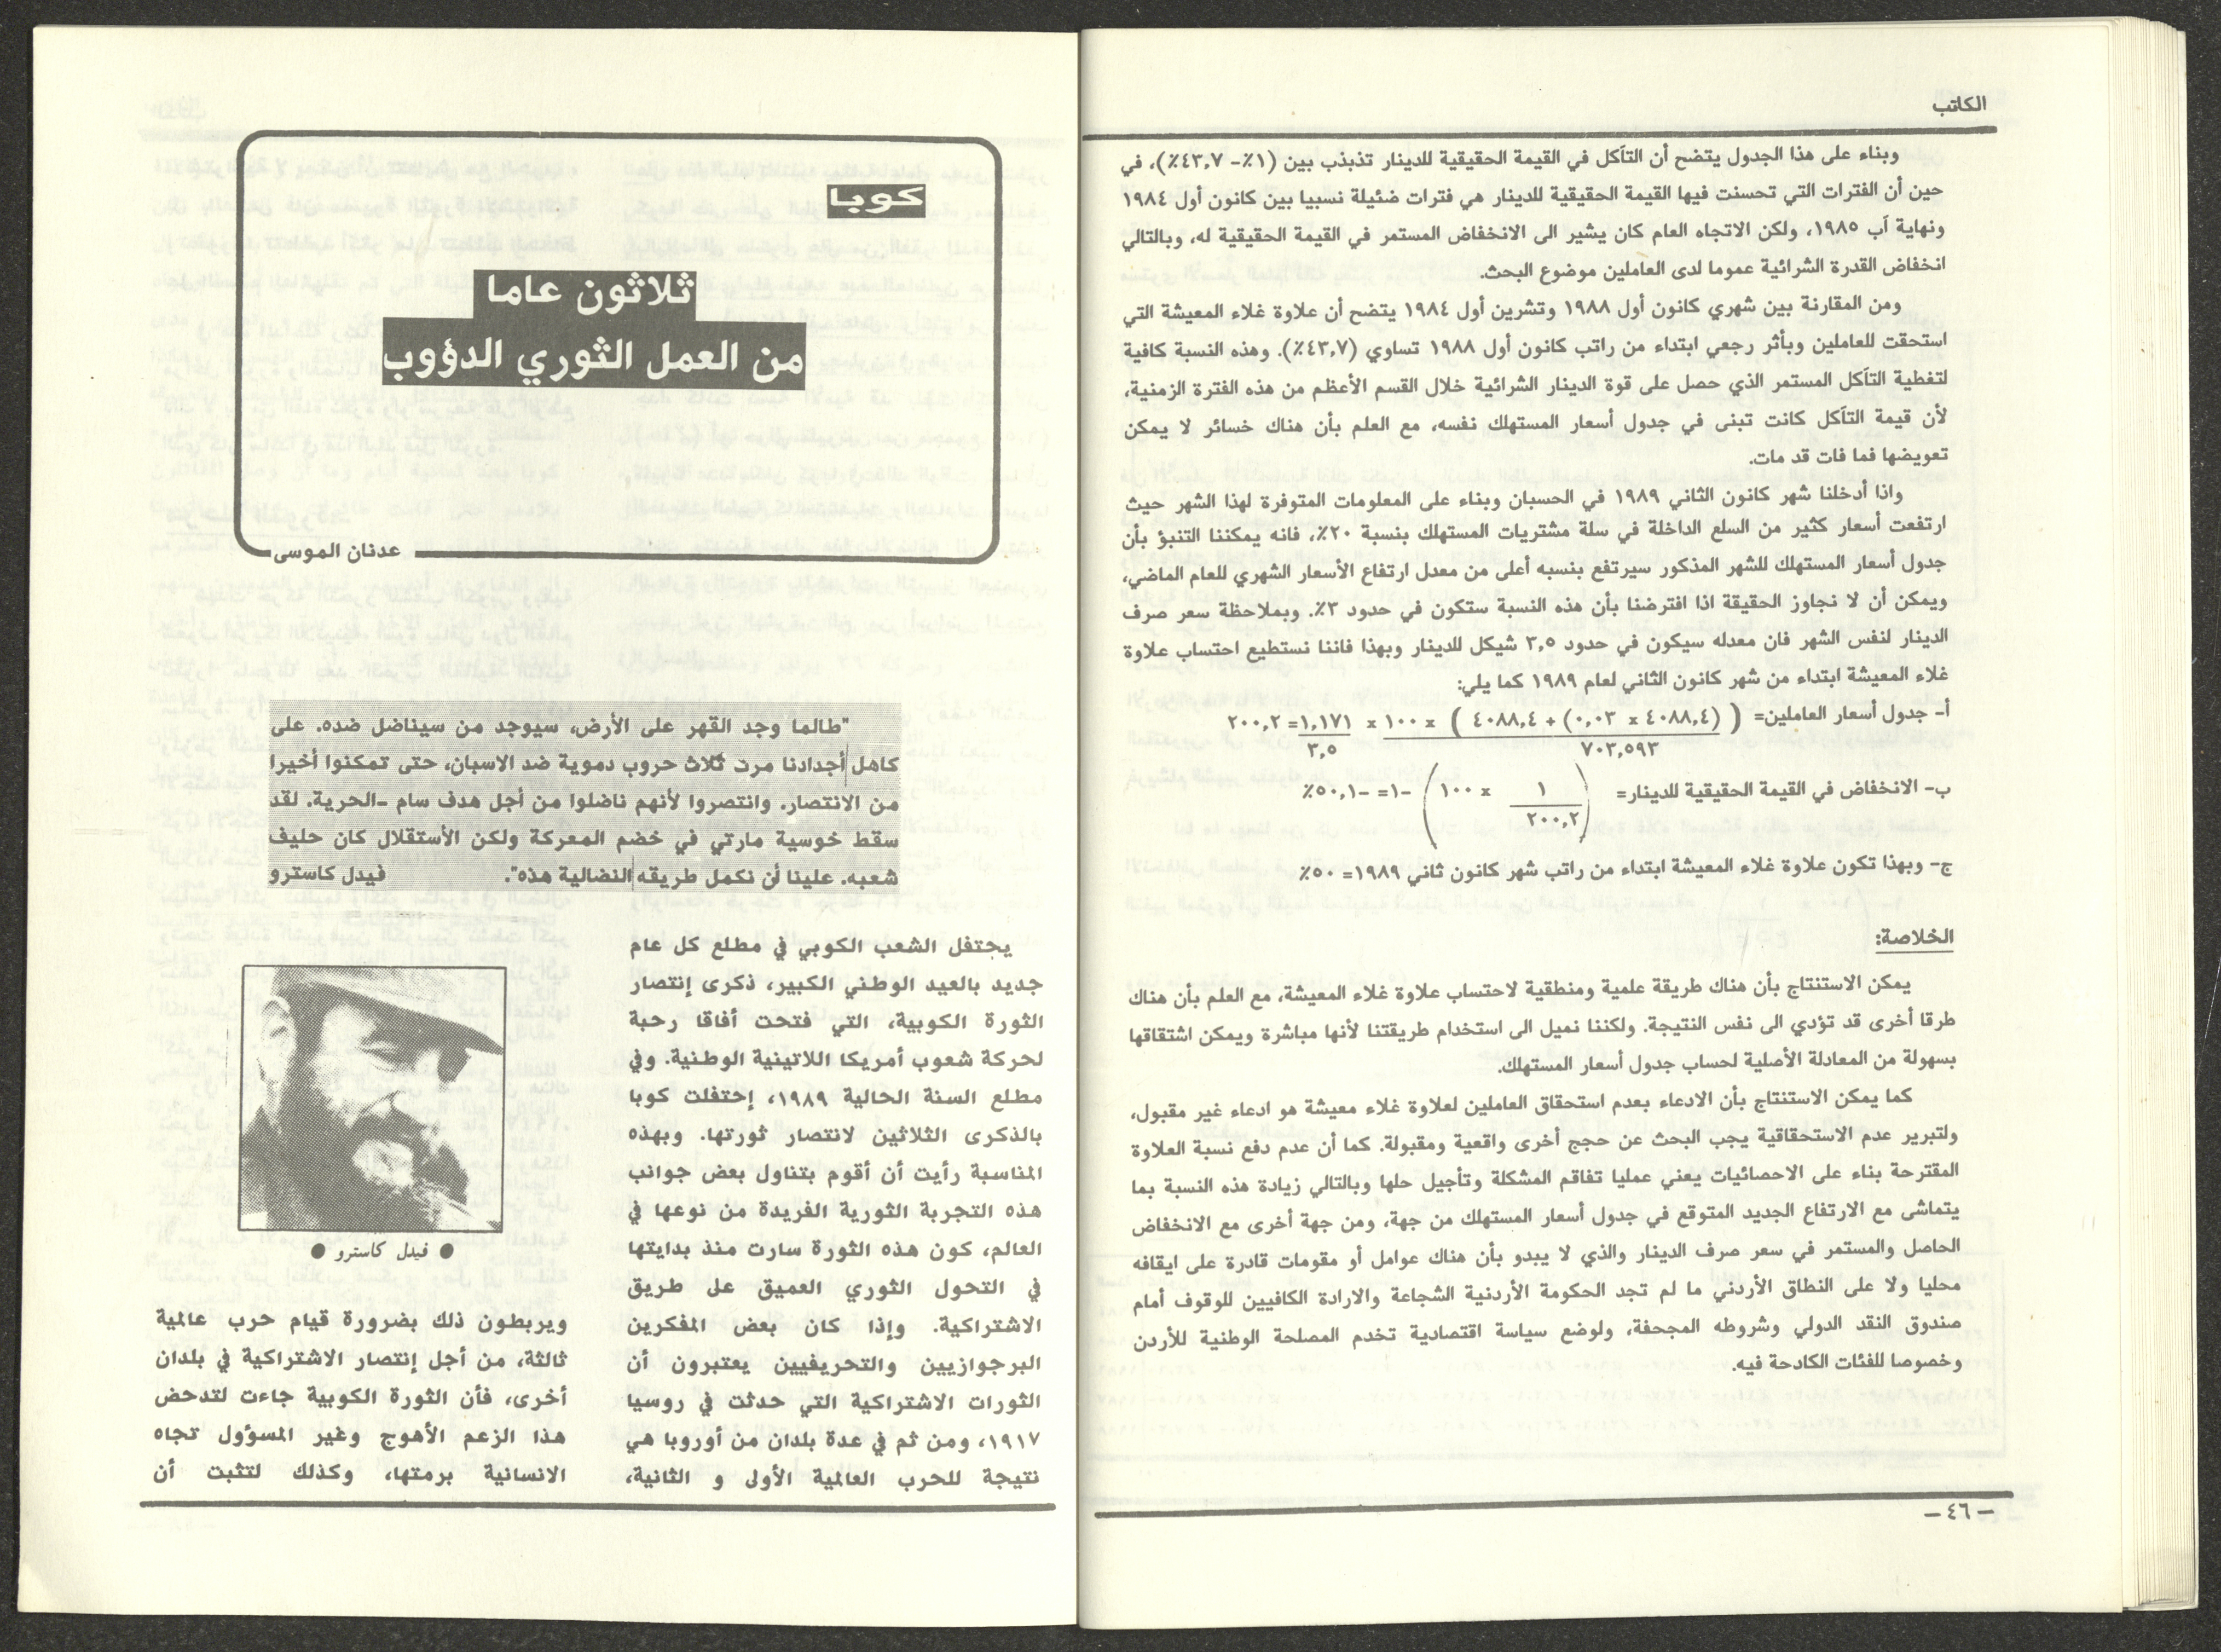 الكاتب
وبناء على هذا الجدول يتضح أن التآكل في القيمة الحقيقية للدينار تذبذب بين (١٪- ٤٣,٧٪)، في
حين أن الفترات التي تحسنت فيها القيمة الحقيقية للدينار هي فترات ضئيلة نسبيا بين كانون أول ١٩٨٤
ونهاية آب ١٩٨٥، ولكن الاتجاه العام كان يشير الى الانخفاض المستمر في القيمة الحقيقية له، وبالتالي
انخفاض القدرة الشرائية عموما لدى العاملين موضوع البحث.
ومن المقارنة بين شهري كانون أول ١٩٨٨ وتشرين أول ١٩٨٤ يتضح أن علاوة غلاء المعيشة التي
استحقت للعاملين وبأثر رجعي ابتداء من راتب كانون أول ١٩٨٨ تساوي (٤٣,٧٪). وهذه النسبة كافية
لتغطية التآكل المستمر الذي حصل على قوة الدينار الشرائية خلال القسم الأعظم من هذه الفترة الزمنية،
لأن قيمة التآكل كانت تبنى في جدول أسعار المستهلك نفسه، مع العلم بأن هناك خسائر لا يمكن
تعويضها فما فات قد مات.
واذا أدخلنا شهر كانون الثاني ١٩٨٩ في الحسبان وبناء على المعلومات المتوفرة لهذا الشهر حيث
ارتفعت أسعار كثير من السلع الداخلة في سلة مشتريات المستهلك بنسبة ٢٠٪، فانه يمكننا التنبؤ بأن
جدول أسعار المستهلك للشهر المذكور سيرتفع بنسبه أعلى من معدل ارتفاع الأسعار الشهري للعام الماضي،
ويمكن أن لا نجاوز الحقيقة اذا افترضنا بأن هذه النسبة ستكون في حدود ٣٪. وبملاحظة سعر صرف
الدينار لنفس الشهر فان معدله سيكون في حدود ٣,٥ شيكل للدينار وبهذا فاننا نستطيع احتساب علاوة
غلاء المعيشة ابتداء من شهر كانون الثاني لعام ١٩٨٩ كما يلي:
أ- جدول أسعار العاملين= ( (٤٠٨٨,٤ x ٠,٠٣) + ٤٠٨٨,٤ ) x ١٠٠ x ١,١٧١ =٢٠٠,٢
٧٠٣,٥٩٣ ٣,٥
ب- الانخفاض في القيمة الحقيقية للدينار= ( ١ x ١٠٠ ) -١= -٥٠,١٪
٢٠٠,٢
ج- وبهذا تكون علاوة غلاء المعيشة ابتداء من راتب شهر كانون ثاني ١٩٨٩= ٥٠٪
الخلاصة:
يمكن الاستنتاج بأن هناك طريقة علمية ومنطقية لاحتساب علاوة غلاء المعيشة، مع العلم بأن هناك
طرقا أخرى قد تؤدي الى نفس النتيجة. ولكننا نميل الى استخدام طريقتنا لأنها مباشرة ويمكن اشتقاقها
بسهولة من المعادلة الأصلية لحساب جدول أسعار المستهلك.
كما يمكن الاستنتاج بأن الادعاء بعدم استحقاق العاملين لعلاوة غلاء معيشة هو ادعاء غير مقبول،
ولتبرير عدم الاستحقاقية يجب البحث عن حجج أخرى واقعية ومقبولة. كما أن عدم دفع نسبة العلاوة
المقترحة بناء على الاحصائيات يعني عمليا تفاقم المشكلة وتأجيل حلها وبالتالي زيادة هذه النسبة بما
يتماشى مع الارتفاع الجديد المتوقع في جدول أسعار المستهلك من جهة، ومن جهة أخرى مع الانخفاض
الحاصل والمستمر في سعر صرف الدينار والذي لا يبدو بأن هناك عوامل أو مقومات قادرة على ايقافه
محليا ولا على النطاق الأردني ما لم تجد الحكومة الأردنية الشجاعة والارادة الكافيين للوقوف أمام
صندوق النقد الدولي وشروطه المجحفة، ولوضع سياسة اقتصادية تخدم المصلحة الوطنية للأردن
وخصوصا للفئات الكادحة فيه.
– ٤٦ –
كوبا
ثلاثون عاما
من العمل الثوري الدؤوب
عدنان الموسى
"طالما وجد القهر على الأرض، سيوجد من سيناضل ضده. على
كاهل أجدادنا مرت ثلاث حروب دموية ضد الاسبان، حتى تمكنوا أخيرا
من الانتصار. وانتصروا لأنهم ناضلوا من أجل هدف سام -الحرية. لقد
سقط خوسية مارتي في خضم المعركة ولكن الأستقلال كان حليف
شعبه. علينا أن نكمل طريقه النضالية هذه". فيدل كاسترو
يحتفل الشعب الكوبي في مطلع كل عام
جديد بالعيد الوطني الكبير، ذكرى إنتصار
الثورة الكوبية، التي فتحت أفاقا رحبة
لحركة شعوب أمريكا اللاتينية الوطنية. وفي
مطلع السنة الحالية ١٩٨٩، إحتفلت كوبا
بالذكرى الثلاثين لانتصار ثورتها. وبهذه
المناسبة رأيت أن أقوم بتناول بعض جوانب
هذه التجربة الثورية الفريدة من نوعها في
العالم، كون هذه الثورة سارت منذ بدايتها
في التحول الثوري العميق على طريق
الاشتراكية. وإذا كان بعض المفكرين
البرجوازيين والتحريفيين يعتبرون أن
الثورات الاشتراكية التي حدثت في روسيا
١٩١٧، ومن ثم في عدة بلدان من أوروبا هي
نتيجة للحرب العالمية الأولى و الثانية،
● فيدل كاسترو ●
ويربطون ذلك بضرورة قيام حرب عالمية
ثالثة، من أجل إنتصار الاشتراكية في بلدان
أخرى، فأن الثورة الكوبية جاءت لتدحض
هذا الزعم الأهوج وغير المسؤول تجاه
الانسانية برمتها، وكذلك لتثبت أن